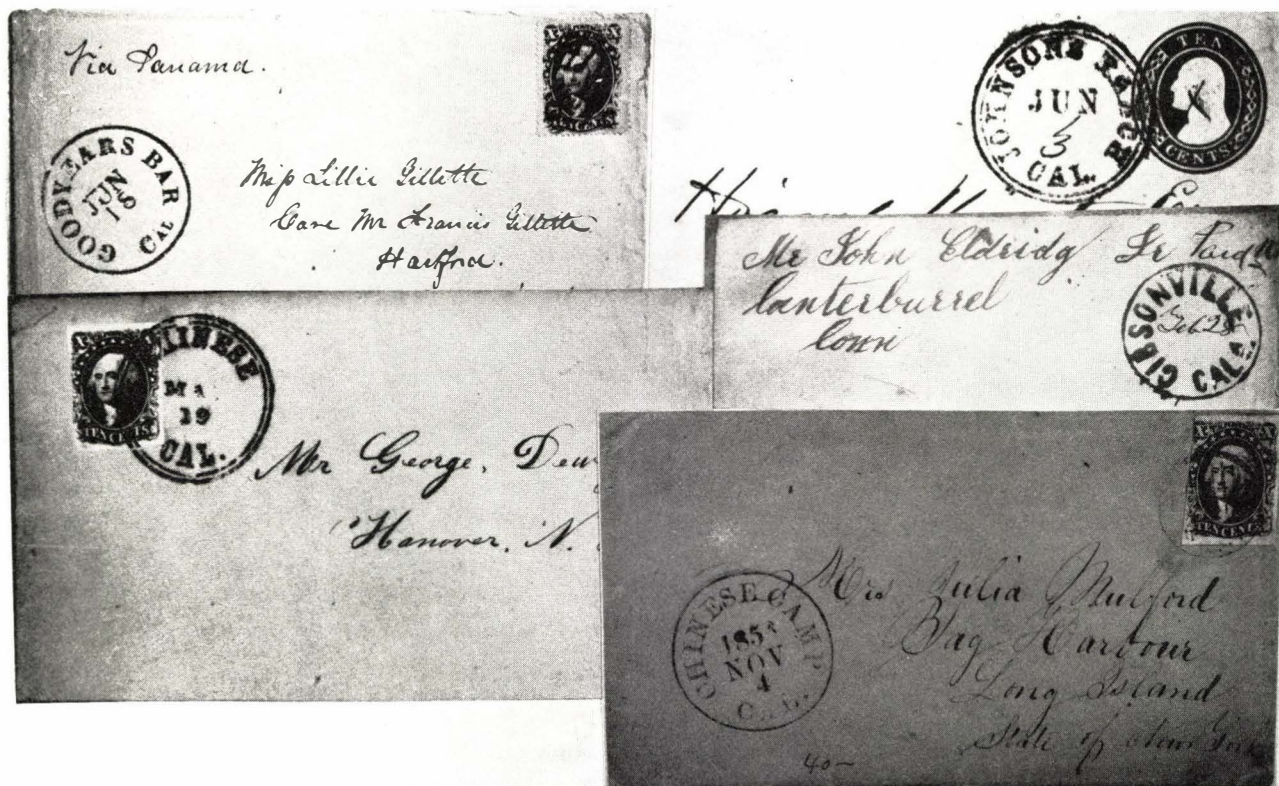 Via Panama.
GOODYEARS BAR
JUN
CAL
Miss Lillie Gillette
Care Mr Francis Gillette
Hartford.
JOHNSONS RANCH
JUN
3
CAL.
TEN
CENTS
X
Mr John Eldridg Sr
Canterburrel
Conn
GIBSONVILLE
CAL.
CHINESE
19
CAL.
TEN CENTS
Mr George. Dew
Hanover. N.
TEN CENTS
Mrs Julia Mulford
Sag Harbour
Long Island
State of New York
CHINESE CAMP
NOV
4
CAL.
40